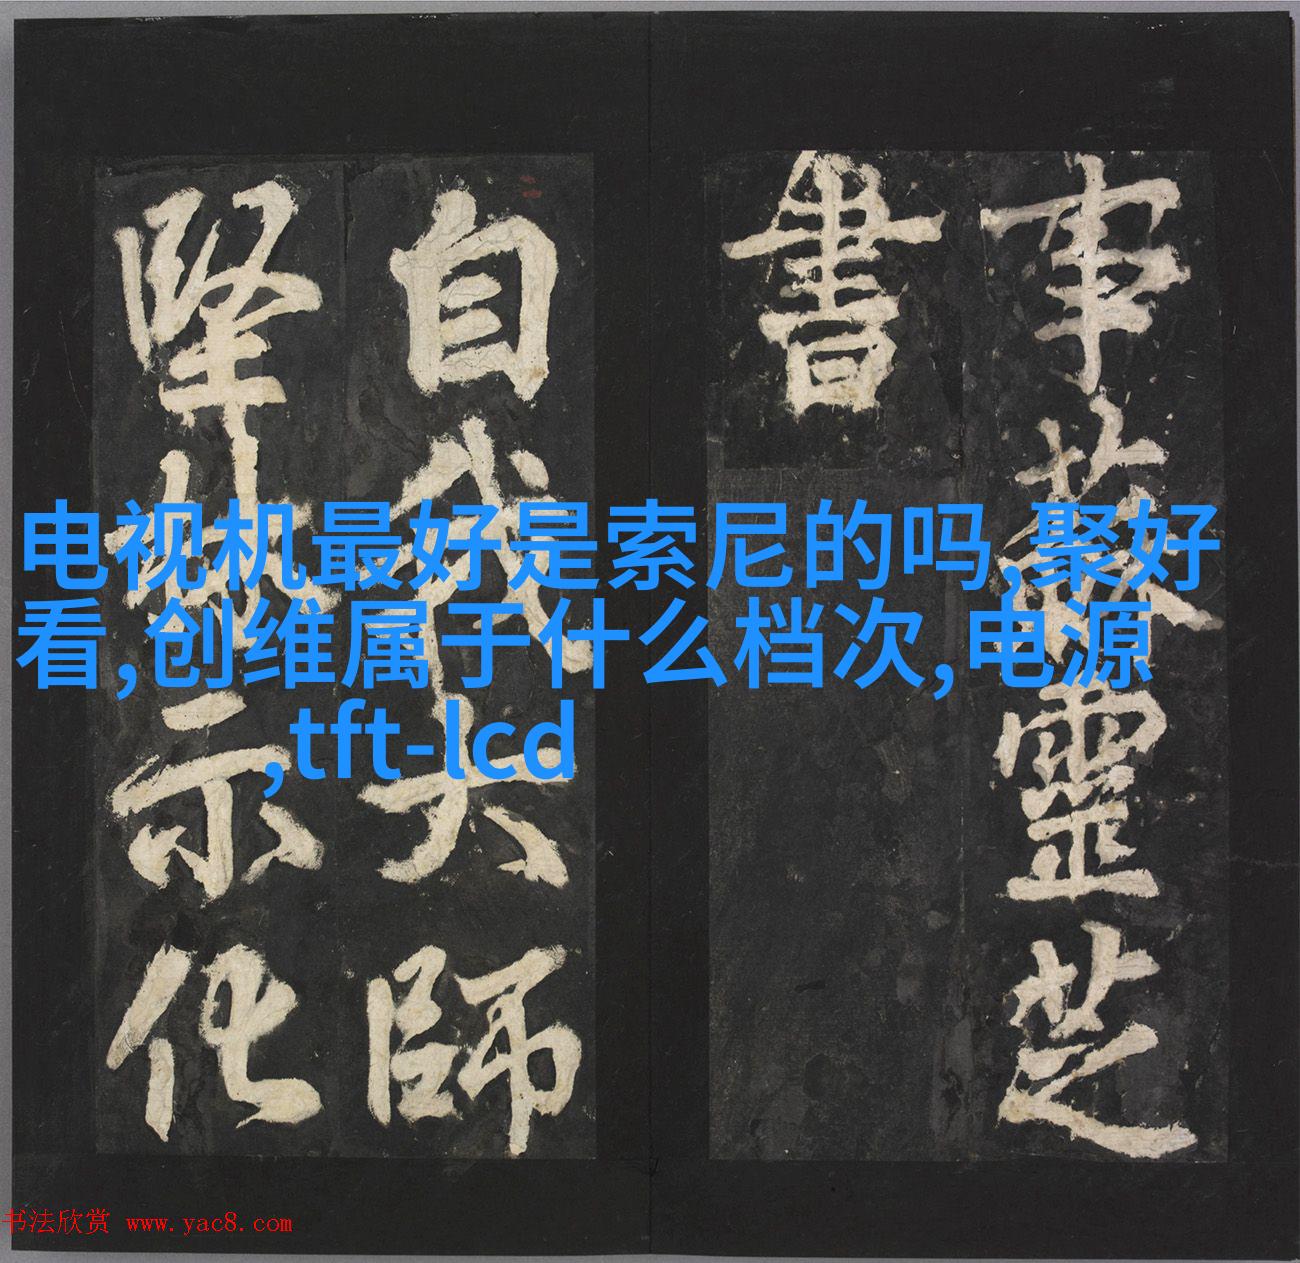 事蘇靈芝
書
自我大師
堅林示化
电视机最好是索尼的吗,聚好
看,创维属于什么档次,电源
,tft-lcd
书法欣赏 www.yac8.com